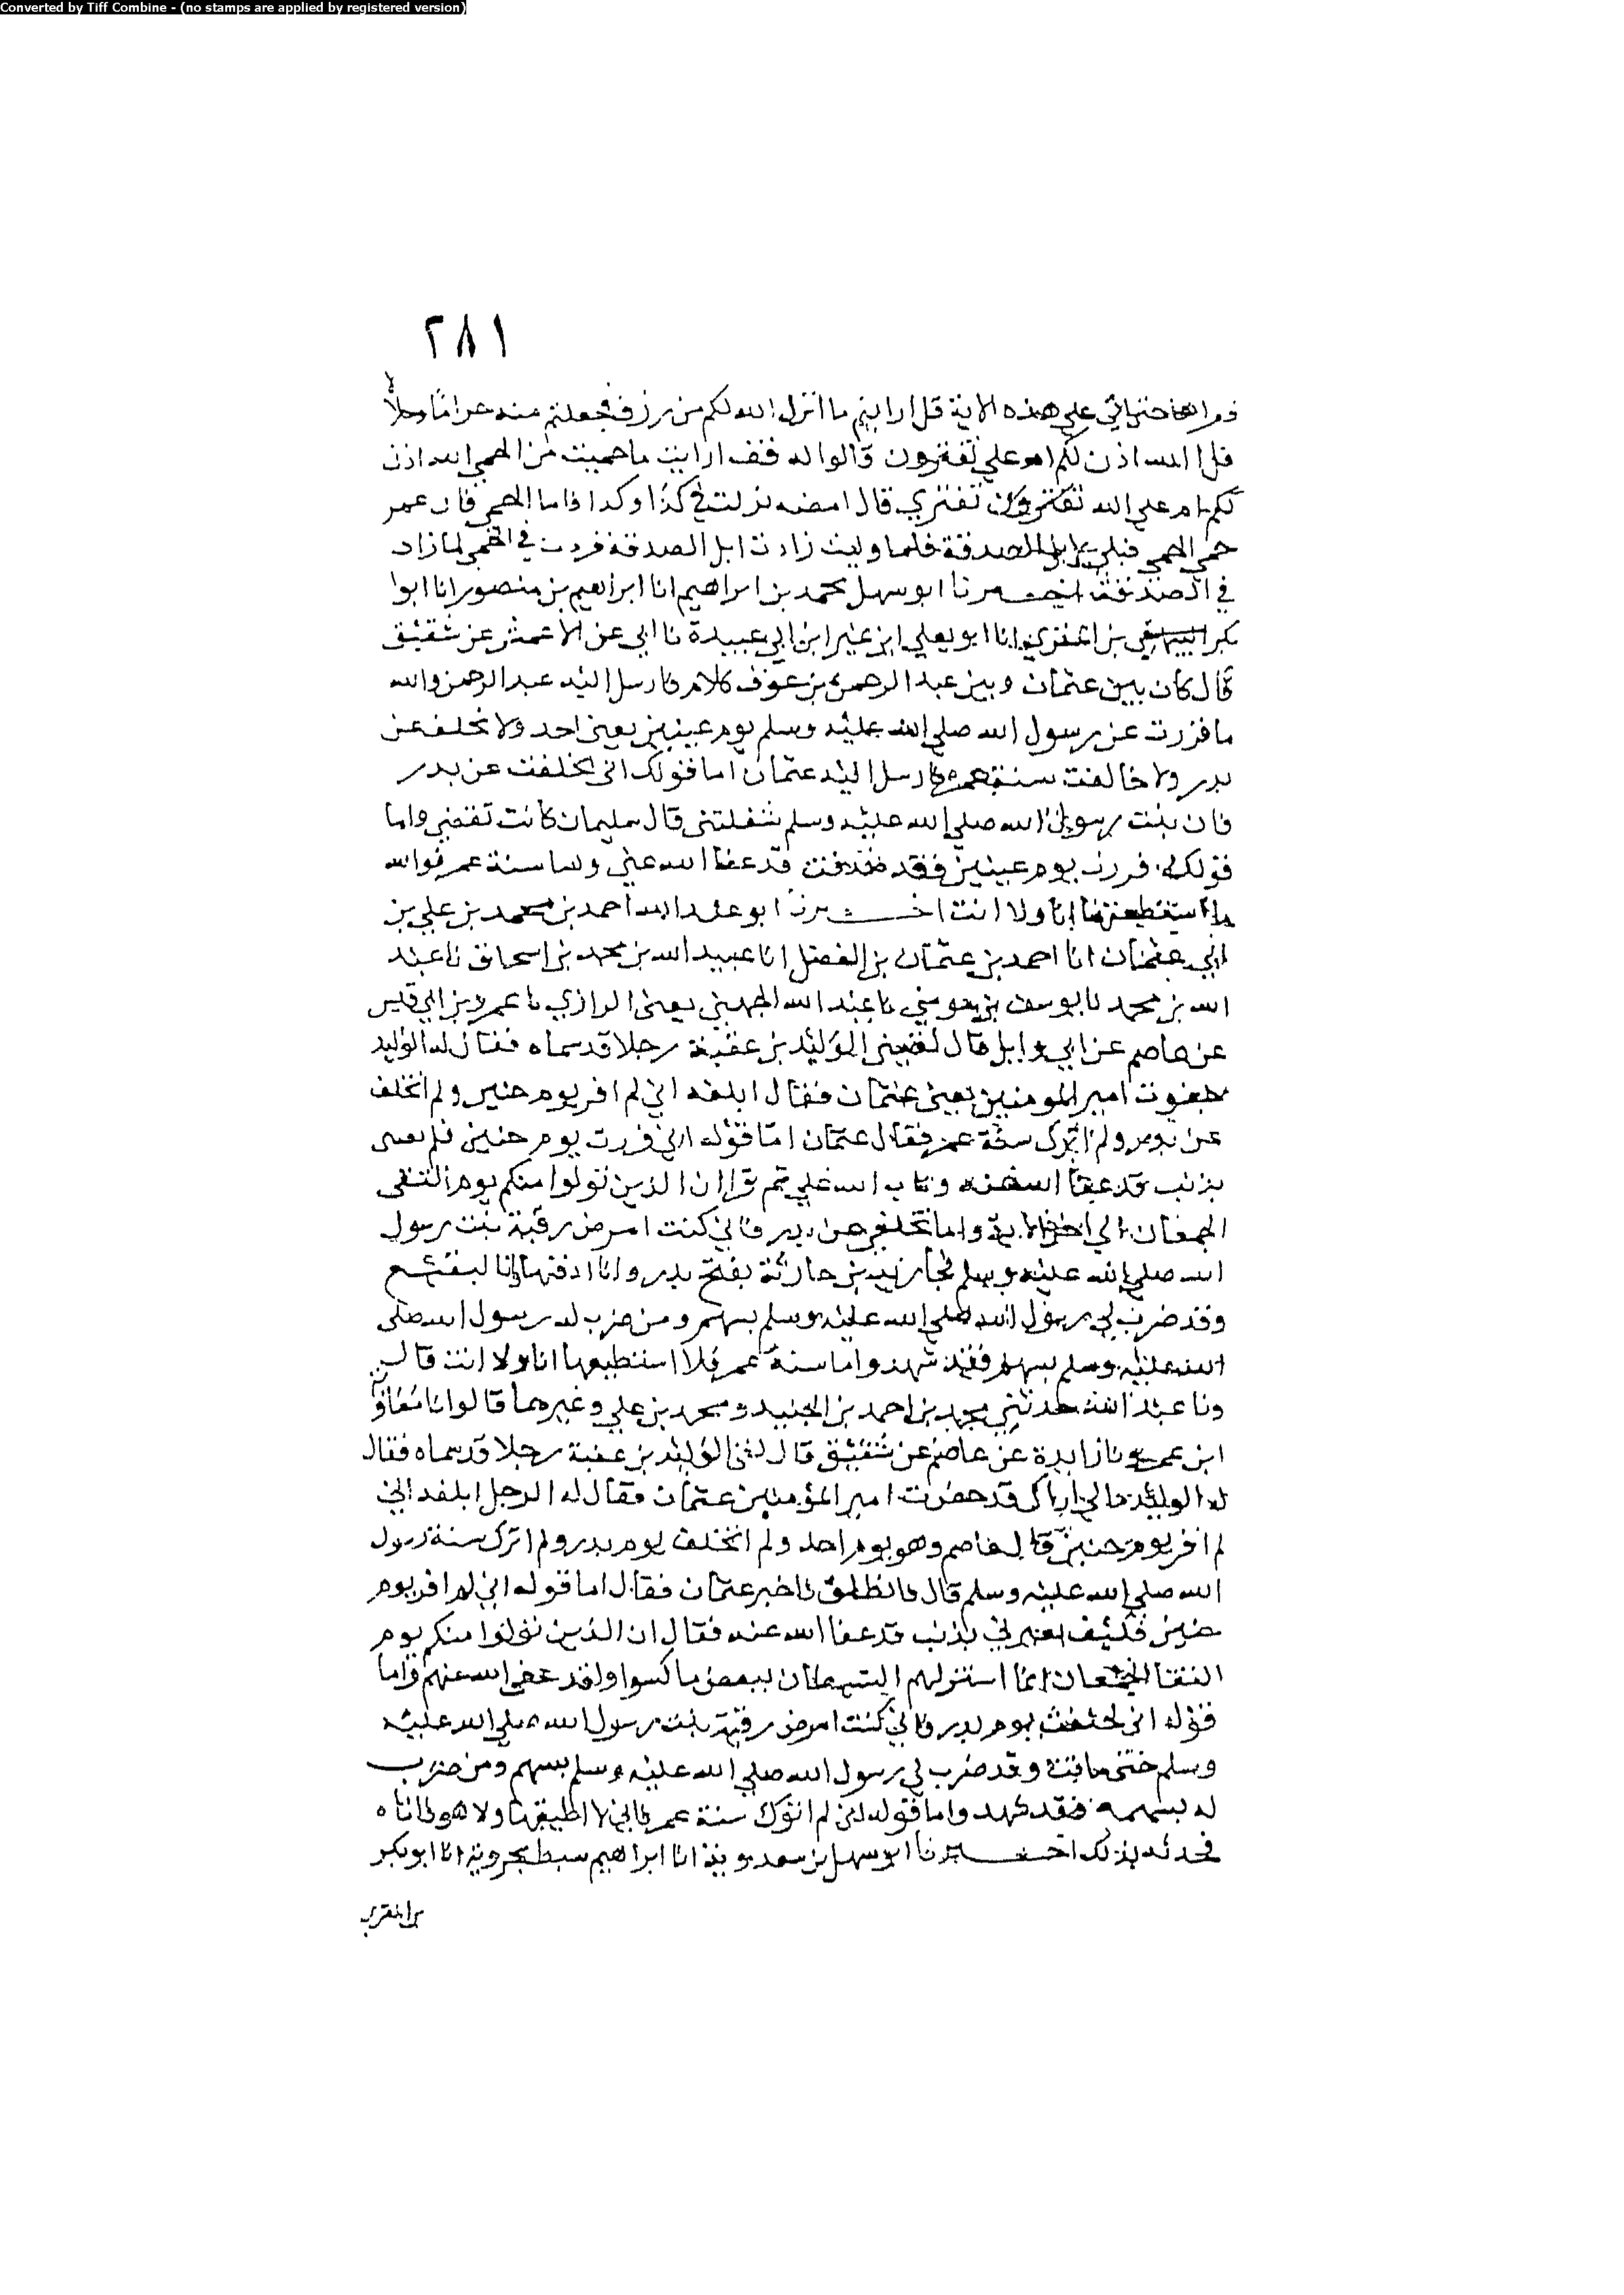 Converted by Tiff Combine - (no stamps are applied by registered version)
٢٨١
قراها حتى اتى على هذه الاية قل ارايتم ما انزل الله لكم من رزق فجعلتم منه حراما وحلالا
قل الله اذن لكم ام على تفترون قالوا له قف ارايت ما حميت من الحمى الله اذن
لكم ام على الله تفترون تفتري قال امضه نزلت في كذا وكذا فاما الحمى فان عمر
حمى الحمى قبلي لابل الصدقة فلما وليت زادت ابل الصدقة فزدت في الحمى لما زاد
في الصدقة اخبرنا ابو سهل محمد بن ابراهيم انا ابراهيم بن منصور انا ابوا
بكر بن المقري انا ابو يعلى ابن نمير ابن ابي عبيدة نا ابي عن الاعمش عن شقيق
قال كان بين عثمان وبين عبد الرحمن بن عوف كلام فارسل اليه عبد الرحمن والله
ما فررت عن رسول الله صلى الله عليه وسلم يوم عينين يعني احد ولا تخلف عن
بدر ولا خالفت سنة عمر فارسل اليه عثمان اما قولك اني تخلفت عن بدر
فان بنت رسول الله صلى الله عليه وسلم شغلتني قال سليمان كانت تقضي واما
قولك فررت يوم عينين فقد صدقت قد عفا الله عني وسا سنة عمر فوالله
ما استطيعها انا ولا انت اخبرنا ابو عبد الله احمد بن محمد بن علي بن
ابي عثمان انا احمد بن عثمان بن الفضل انا عبيد الله بن محمد بن اسحاق نا عبد
الله بن محمد نا يوسف بن موسى نا عبد الله الجهني يعني الرازي نا عمرو بن ابي قيس
عن عاصم عن ابي وايل قال لقيني الوليد بن عقبة رجلا قد سماه فقال له الوليد
جفوت امير المومنين يعني عثمان فقال ابلغه اني لم افر يوم حنين ولم اتخلف
عن بدر ولم اترك سنة عمر فقال عثمان اما قوله اني فررت يوم حنين فلم يعير
بذنب قد عفا الله عنه وتاب الله علي ثم قرا ان الذين تولوا منكم يوم التقى
الجمعان الى اخر الاية واما تخلفي عن بدر فاني كنت امرض رقية بنت رسول
الله صلى الله عليه وسلم فجا زيد بن حارثة بفتح بدر وانا ادفنها بالبقيع
وقد ضرب لي رسول الله صلى الله عليه وسلم بسهم ومن ضرب له رسول الله صلى
الله عليه وسلم بسهم فقد شهد واما سنة عمر فلا استطيعها انا ولا انت قال
ونا عبد الله حدثني محمد بن احمد بن الجنيد ومحمد بن علي وغيرهما قالوا نا معاوية
ابن عمرو نا زايدة عن عاصم عن شقيق قال لقي الوليد بن عقبة رجلا قد سماه فقال
له الوليد مالي اراك قد حضرت امير المؤمنين عثمان فقال له الرجل ابلغه اني
لم افر يوم حنين قال عاصم وهو يوم احد ولم اتخلف يوم بدر ولم اترك سنة رسول
الله صلى الله عليه وسلم قال فانطلق فاخبر عثمان فقال اما قوله اني لم افر يوم
حنين فكيف يعيرني بذنب قد عفا الله عنه فقال ان الذين تولوا منكم يوم
التقا الجمعان انما استزلهم الشيطان ببعض ما كسبوا ولقد عفى الله عنهم واما
قوله اني تخلفت يوم بدر فاني كنت امرض رقية بنت رسول الله صلى الله عليه
وسلم حتى ماتت وقد ضرب لي رسول الله صلى الله عليه وسلم بسهم ومن ضرب
له بسهمه فقد شهد واما قوله اني لم اترك سنة عمر فاني لا اطيقها ولا هو فاتاه
فحدثه بذلك اخبرنا ابو سهل بن سعدويه انا ابراهيم سبط بحرويه انا ابو بكر
بن المقري